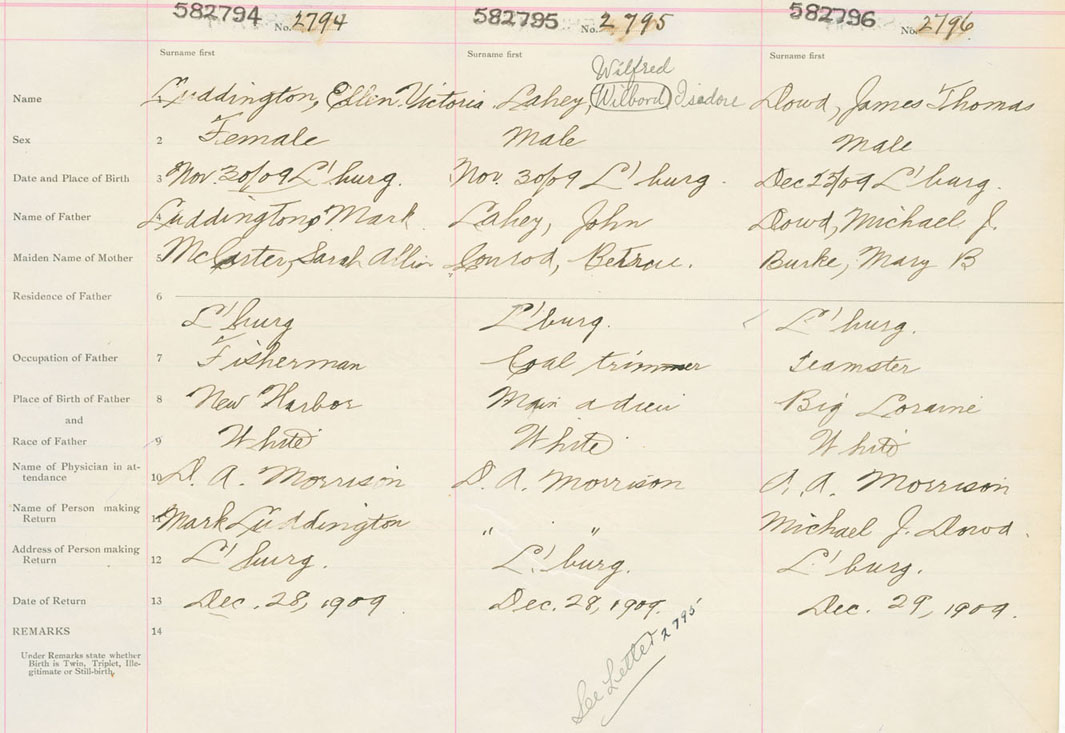 582794 No. 2794 582795 No. 2795 582796 No. 2796
Surname first Surname first Surname first
Wilfred
Name Luddington, Ellen Victoria Lahey, (Wilbord) Isadore Dowd, James Thomas
Sex 2 Female Male Male
Date and Place of Birth 3 Nov. 30/09 L'burg. Nov. 30/09 L'burg. Dec 25/09 L'burg.
Name of Father 4 Luddington, Mark Lahey, John Dowd, Michael J.
Maiden Name of Mother 5 McCarter, Sarah Conrod, Burke, Mary B
Residence of Father 6
L'burg L'burg. L'burg.
Occupation of Father 7 Fisherman Coal trimmer Teamster
Place of Birth of Father 8 New Harbor Main a dieu Big Loraine
and
Race of Father 9 White White White
Name of Physician in at-
tendance 10 D. A. Morrison D. A. Morrison A. A. Morrison
Name of Person making
Return 11 Mark Luddington " " Michael J. Dowd.
Address of Person making
Return 12 L'burg. L'burg. L'burg.
Date of Return 13 Dec. 28, 1909 Dec. 28, 1909. Dec. 29, 1909.
REMARKS 14
Under Remarks state whether
Birth is Twin, Triplet, Ille-
gitimate or Still-birth.
See Letter 2795